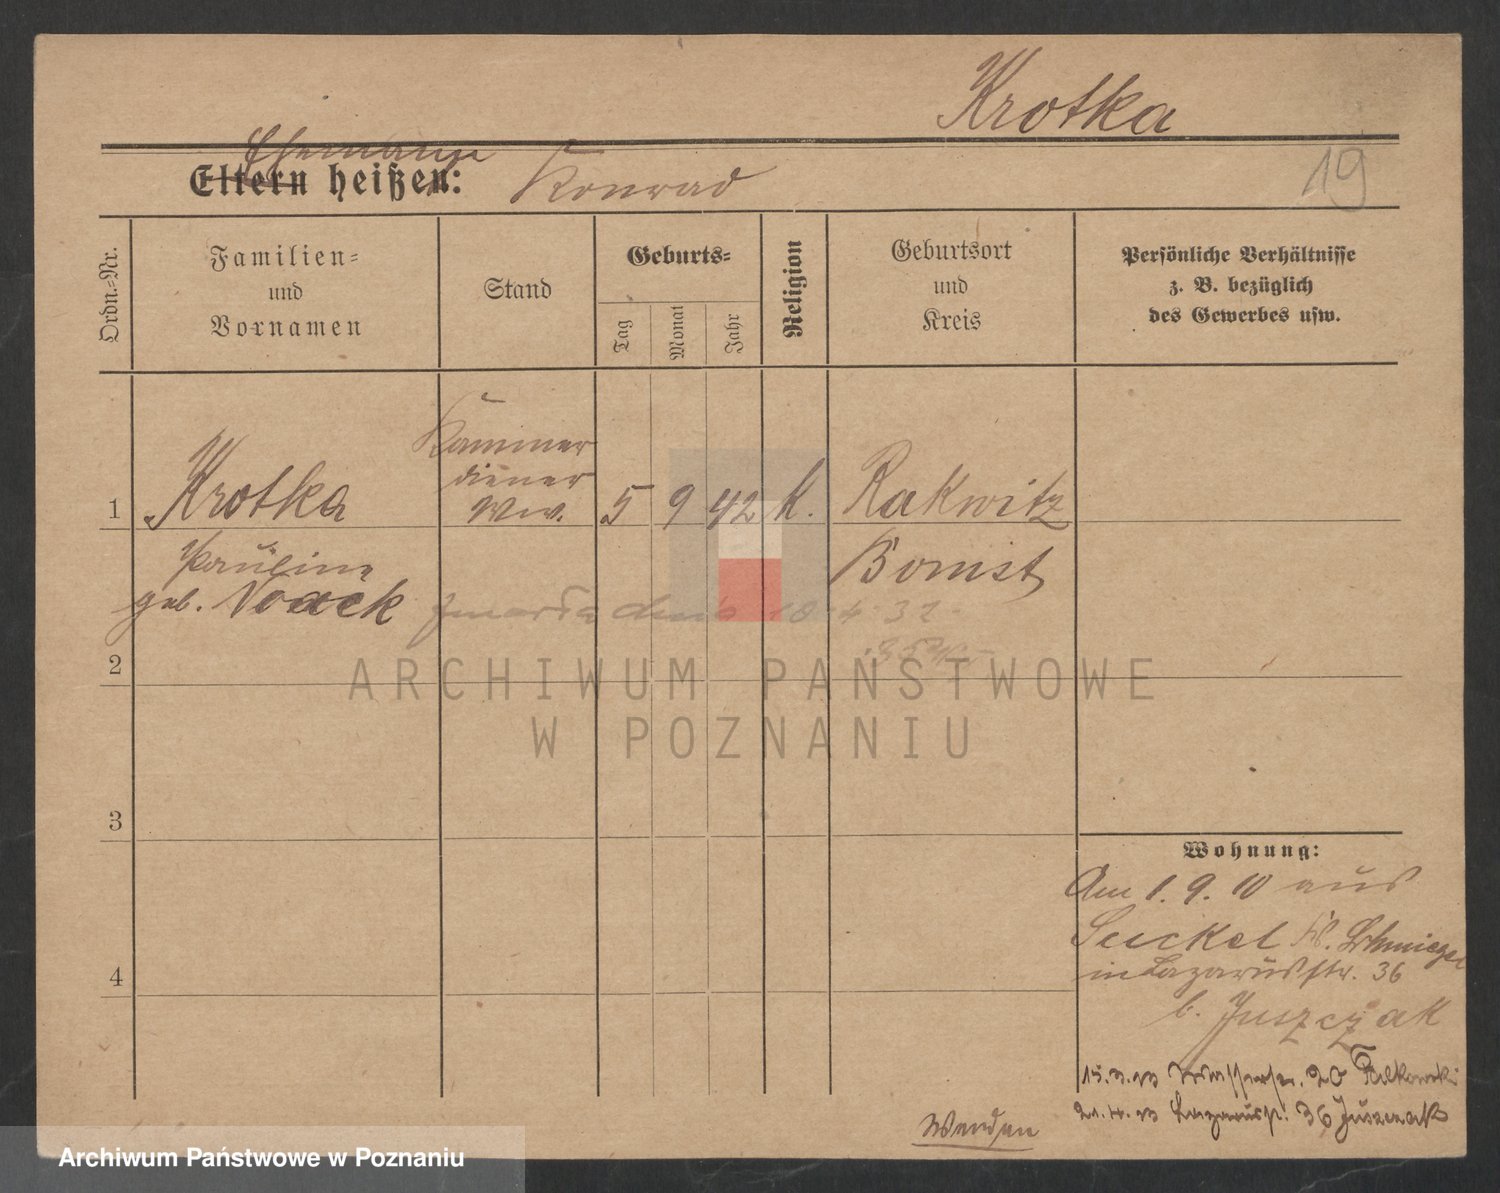 Krotka
19
Ehemann
Eltern heißen: Konrad
Ordn.-Nr.
Familien-
und
Vornamen
Stand
Geburts-
Tag
Monat
Jahr
Religion
Geburtsort
und
Kreis
Persönliche Verhältnisse
z. B. bezüglich
des Gewerbes usw.
Kammer
diener
Ww.
1 Krotka 5 9 42 k. Rakwitz
Pauline
geb. Noack
Bomst
zmarła dnia 18 4 32
2
ARCHIWUM PAŃSTWOWE
W POZNANIU
3
4
Wohnung:
Am 1. 9. 10 aus
Kr. Schmiegel
in Lazarusstr. 36
b. Juszczak
15.3.13 Wasserstr. 20
21.4.13 Lazarusstr. 36 Juszczak
Wenden
Archiwum Państwowe w Poznaniu